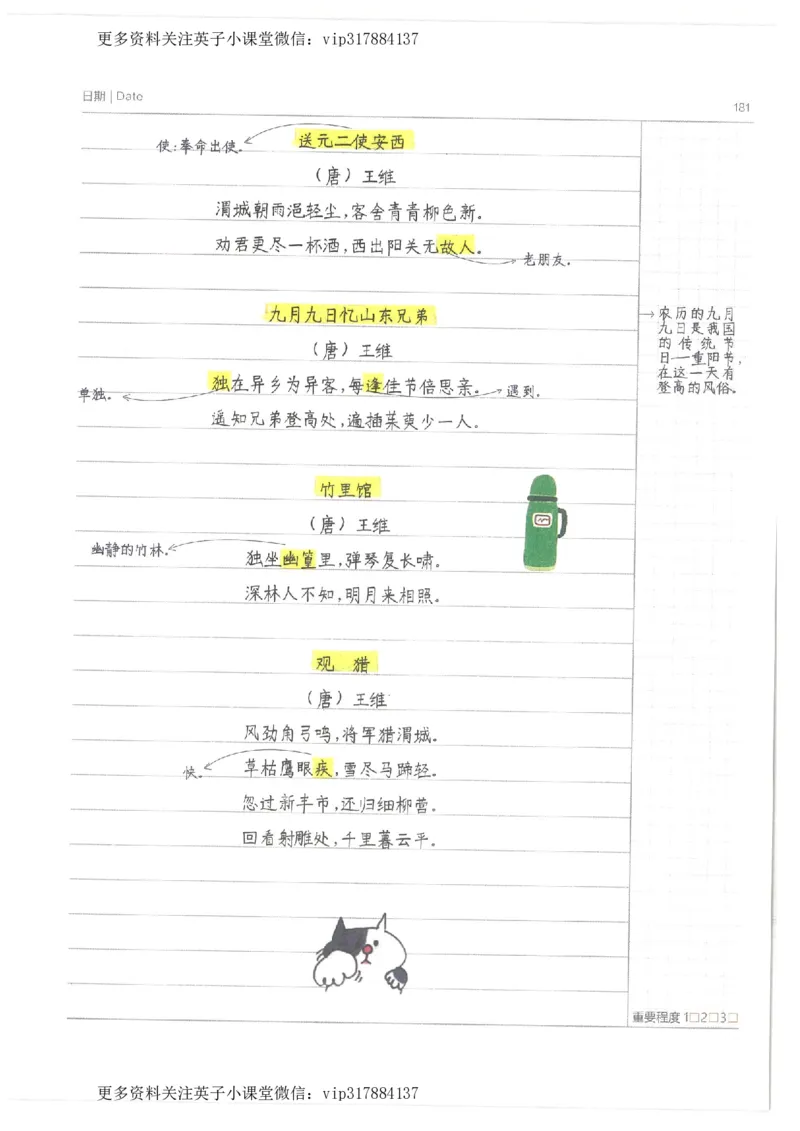 更多资料关注英子小课堂微信：vip317884137
日期 | Date
181
使:奉命出使。
送元二使安西
（唐）王维
渭城朝雨浥轻尘,客舍青青柳色新。
劝君更尽一杯酒,西出阳关无故人。
老朋友。
九月九日忆山东兄弟
（唐）王维
独在异乡为异客,每逢佳节倍思亲。
单独。
遇到。
遥知兄弟登高处,遍插茱萸少一人。
农历的九月
九日是我国
的传统节
日—重阳节,
在这一天有
登高的风俗。
竹里馆
（唐）王维
幽静的竹林。
独坐幽篁里,弹琴复长啸。
深林人不知,明月来相照。
观 猎
（唐）王维
风劲角弓鸣,将军猎渭城。
快。
草枯鹰眼疾,雪尽马蹄轻。
忽过新丰市,还归细柳营。
回看射雕处,千里暮云平。
重要程度 1□2□3□
更多资料关注英子小课堂微信：vip317884137